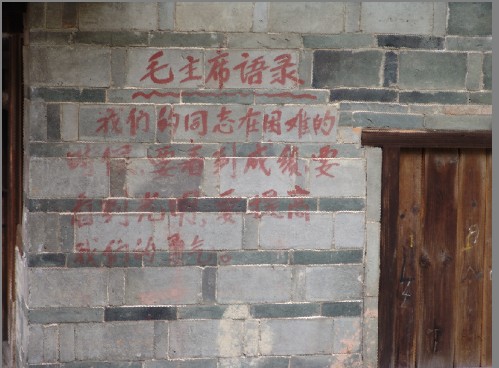 毛主席语录
我们的同志在困难的
时候,要看到成绩,要
看到光明,要提高
我们的勇气。